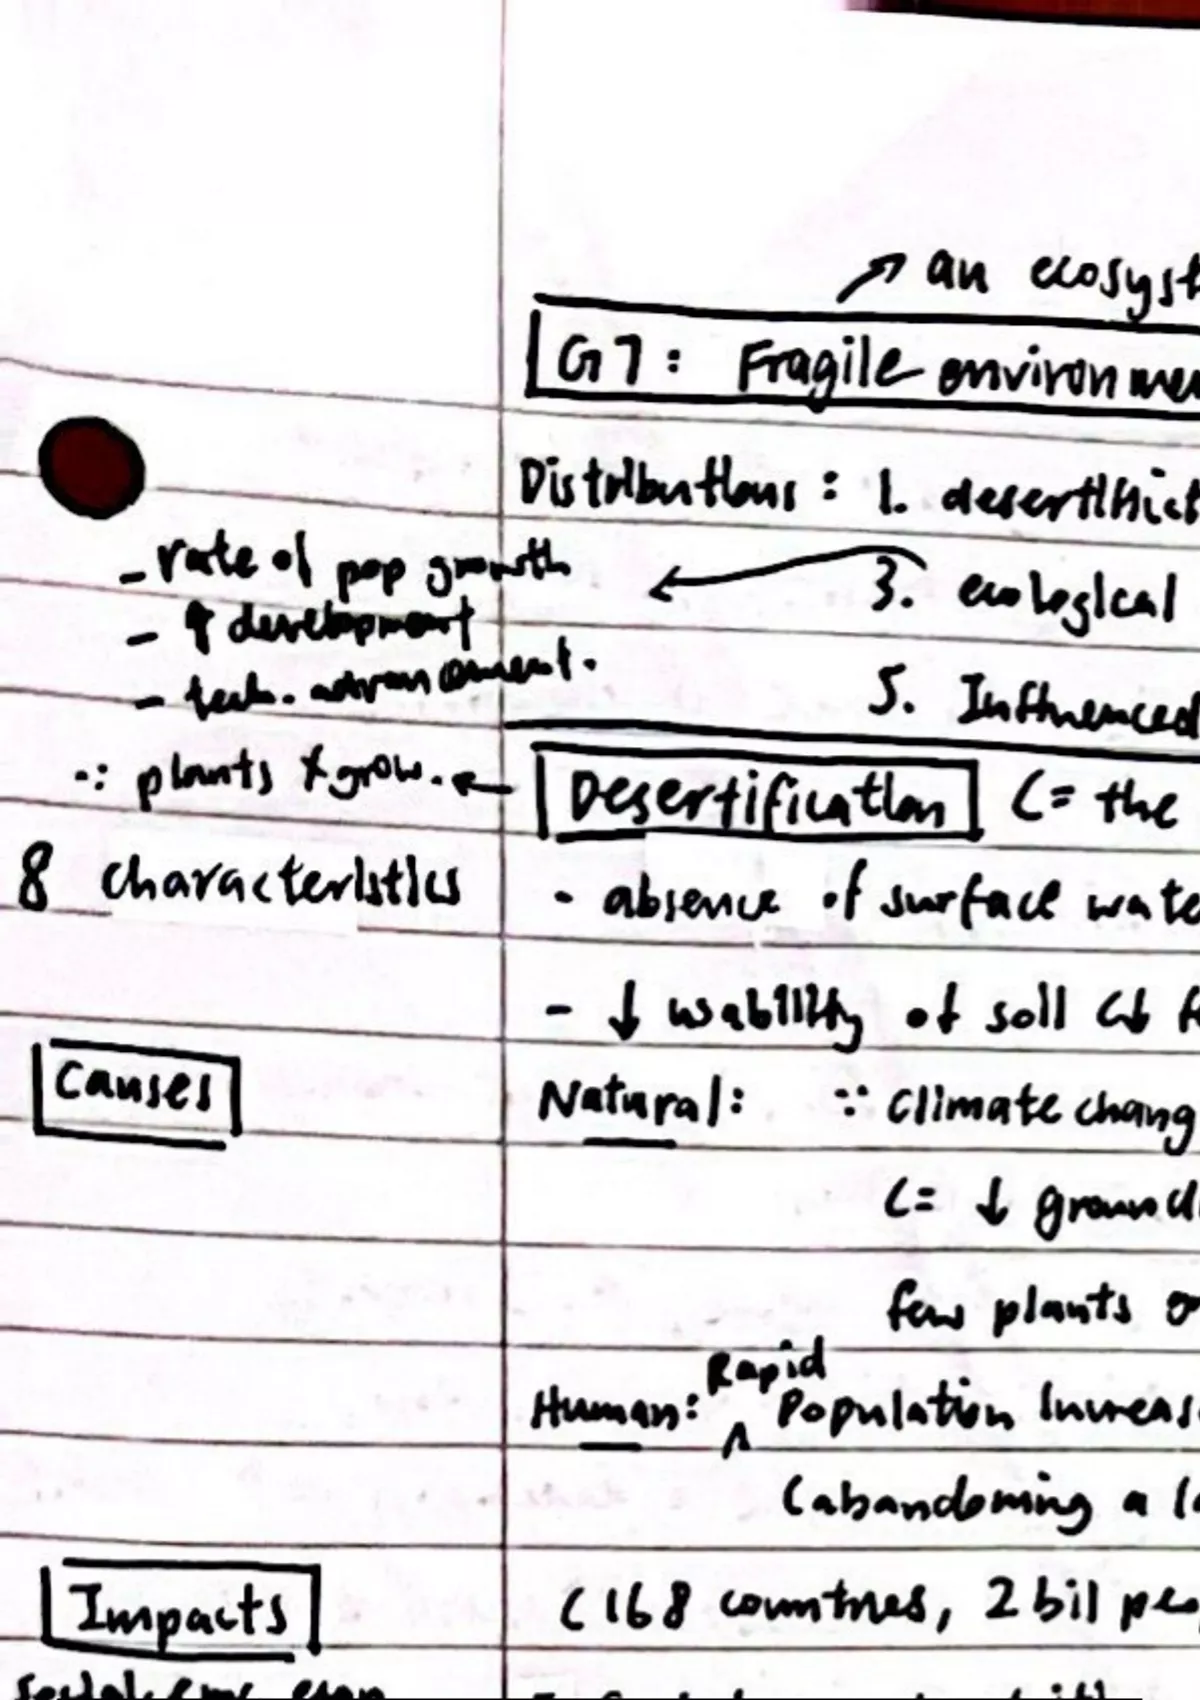 ↗ an ecosyst
G7: Fragile environmen
Distributions: 1. desertificat
- rate of pop growth
3. ecological
- ↑ development
- tech. advancement.
5. Influenced
∴ plants x grow. ← Desertification (= the
8 characteristics - absence of surface wate
- ↓ usability of soil
Causes Natural: ∵ climate chang
(= ↓ ground
few plants
Rapid
Human: ^ Population Increas
(abandoning a
Impacts (168 countries, 2 bil peo